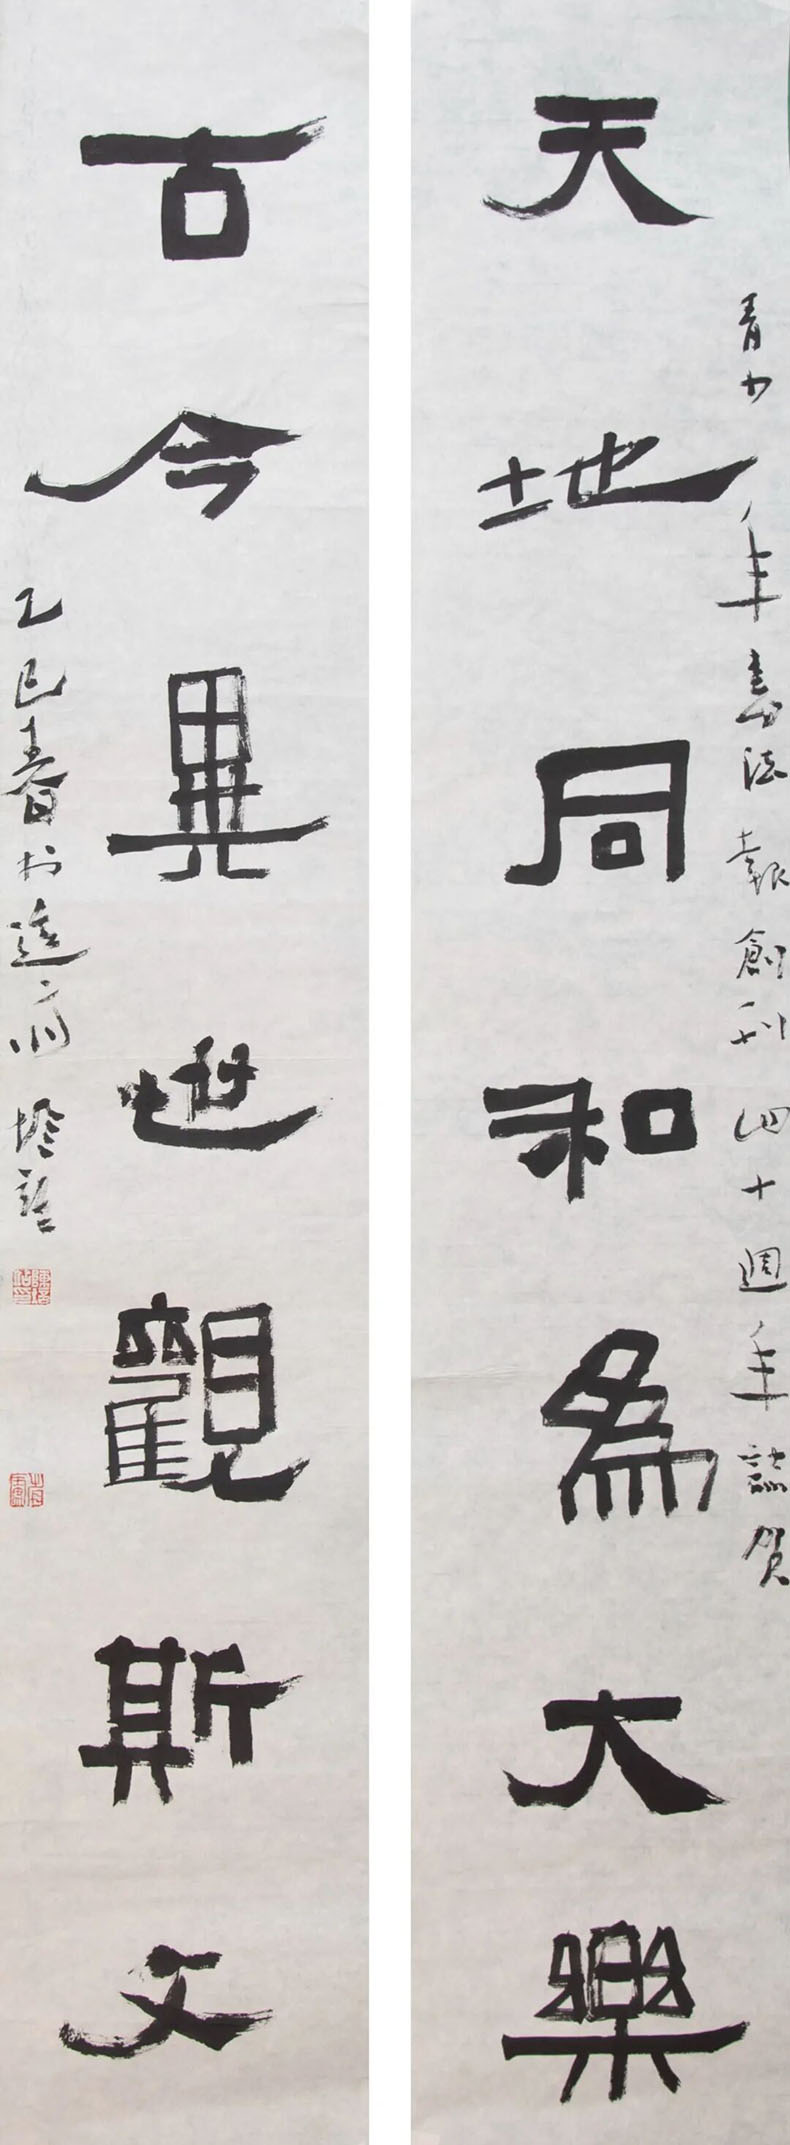 天地同和為大樂
青少年書法報創刊四十週年誌賀
古今異世觀斯文
乙巳春於遠